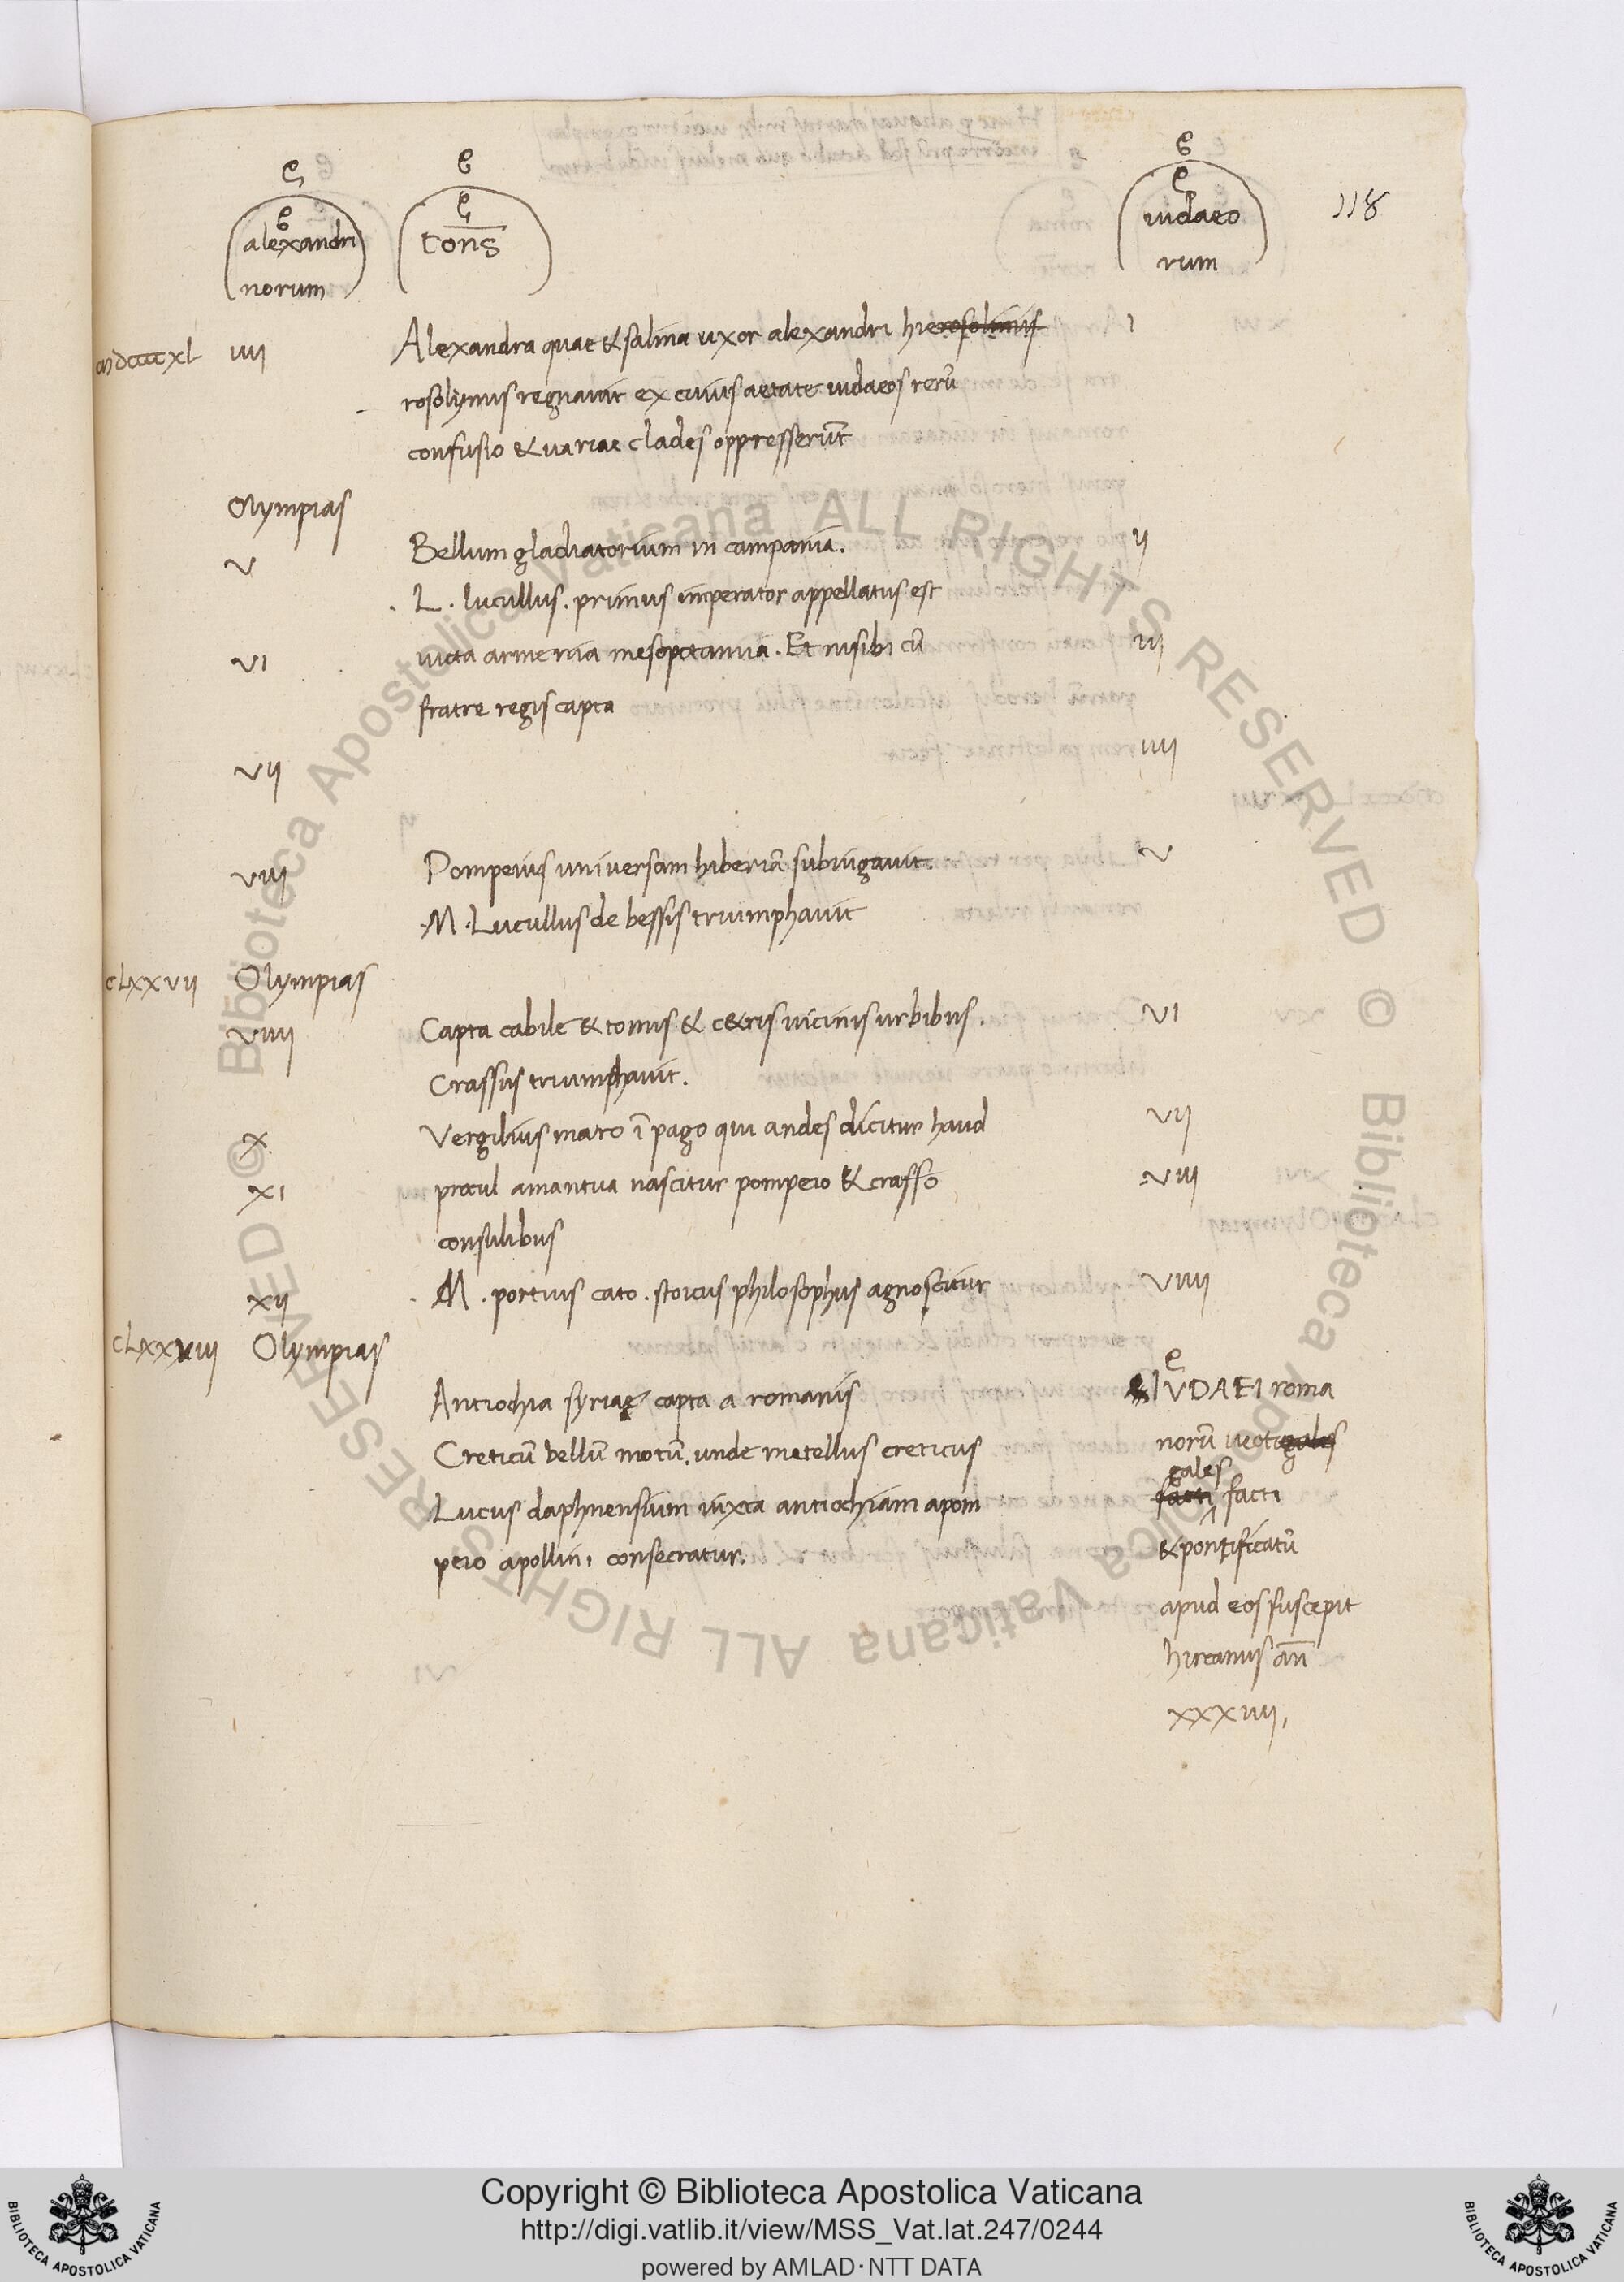 118
alexandri
norum
Cons
iudaeo
rum
mdccccxl iiii Alexandra quae & salina uxor alexandri hierosolimis i
rosolymis regnavit ex cuius aetate iudaeos rerū
confusio & variae clades oppresserūt
Olympias
v Bellum gladiatorium in campania. ii
. L. lucullus. primus imperator appellatus est
vi victa armenia mesopotamia. Et nisibi cū iii
fratre regis capta
vii iiii
viii Pompeius universam hiberiā subiugavit. v
.M. Lucullus de bessis triumphavit
clxxvii Olympias
viiii Capta cabile & tomis & c&ris vicinis urbibus. vi
Crassus triumphavit.
x Vergilius maro ī pago qui andes dicitur haud vii
xi procul amantua nascitur pompeio & crasso viii
consulibus
xii . M. portius cato. stoicus philosophus agnoscitur viiii
clxxviii Olympias
Antiochia syriae capta a romanis
Creticū bellū motū. unde metellus creticus
Lucus daphnensium iuxta antiochiam apom
peio apollini consecratur.
IVDAEI roma
norū vectigales
gales
facti facti
& pontificatū
apud eos suscepit
hircanus an̄
xxxiiii,
Biblioteca Apostolica Vaticana ALL RIGHTS RESERVED © Biblioteca Apostolica Vaticana ALL RIGHTS RESERVED ©
Copyright © Biblioteca Apostolica Vaticana
http://digi.vatlib.it/view/MSS_Vat.lat.247/0244
powered by AMLAD·NTT DATA
BIBLIOTECA APOSTOLICA VATICANA
BIBLIOTECA APOSTOLICA VATICANA